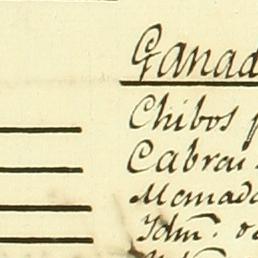 Ganad
Chibos p
Cabras
Mamada
Idm. o